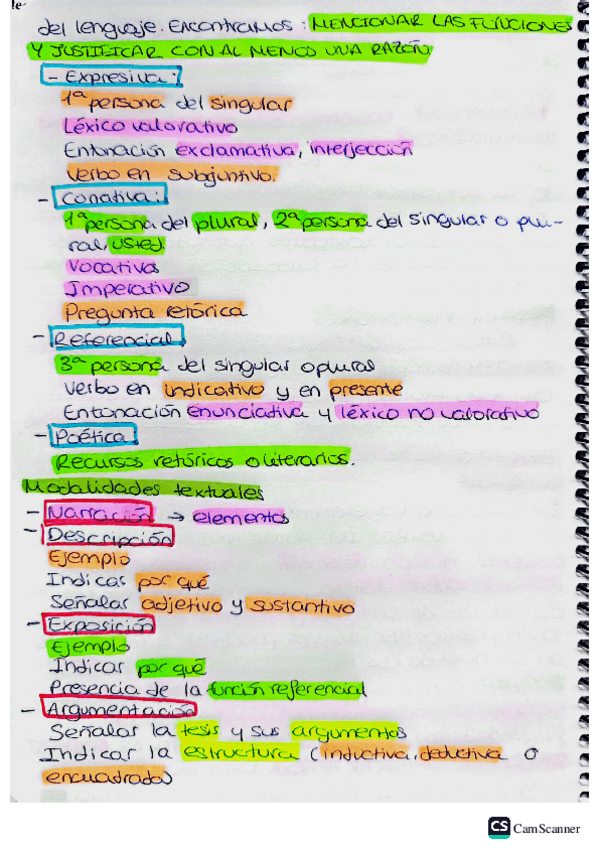 le
del lenguaje. Encontramos: MENCIONAR LAS FUNCIONES
Y JUSTIFICAR CON AL MENOS UNA RAZÓN
- Expresiva:
1ª persona del singular
Léxico valorativo
Entonación exclamativa, interjección
Verbo en subjuntivo.
- Conativa:
1ª persona del plural, 2ª persona del singular o plu-
ral, usted.
Vocativos
Imperativo
Pregunta retórica
- Referencial
3ª persona del singular o plural
Verbo en indicativo y en presente
Entonación enunciativa y léxico no valorativo
- Poética
Recursos retóricos o literarios.
Modalidades textuales
- Narración → elementos
- Descripción
Ejemplo
Indicar por qué
Señalar adjetivo y sustantivo
- Exposición
Ejemplo
Indicar por qué
Presencia de la función referencial
- Argumentación
Señalar la tesis y sus argumentos
Indicar la estructura (inductiva, deductiva o
encuadrada)
CS CamScanner